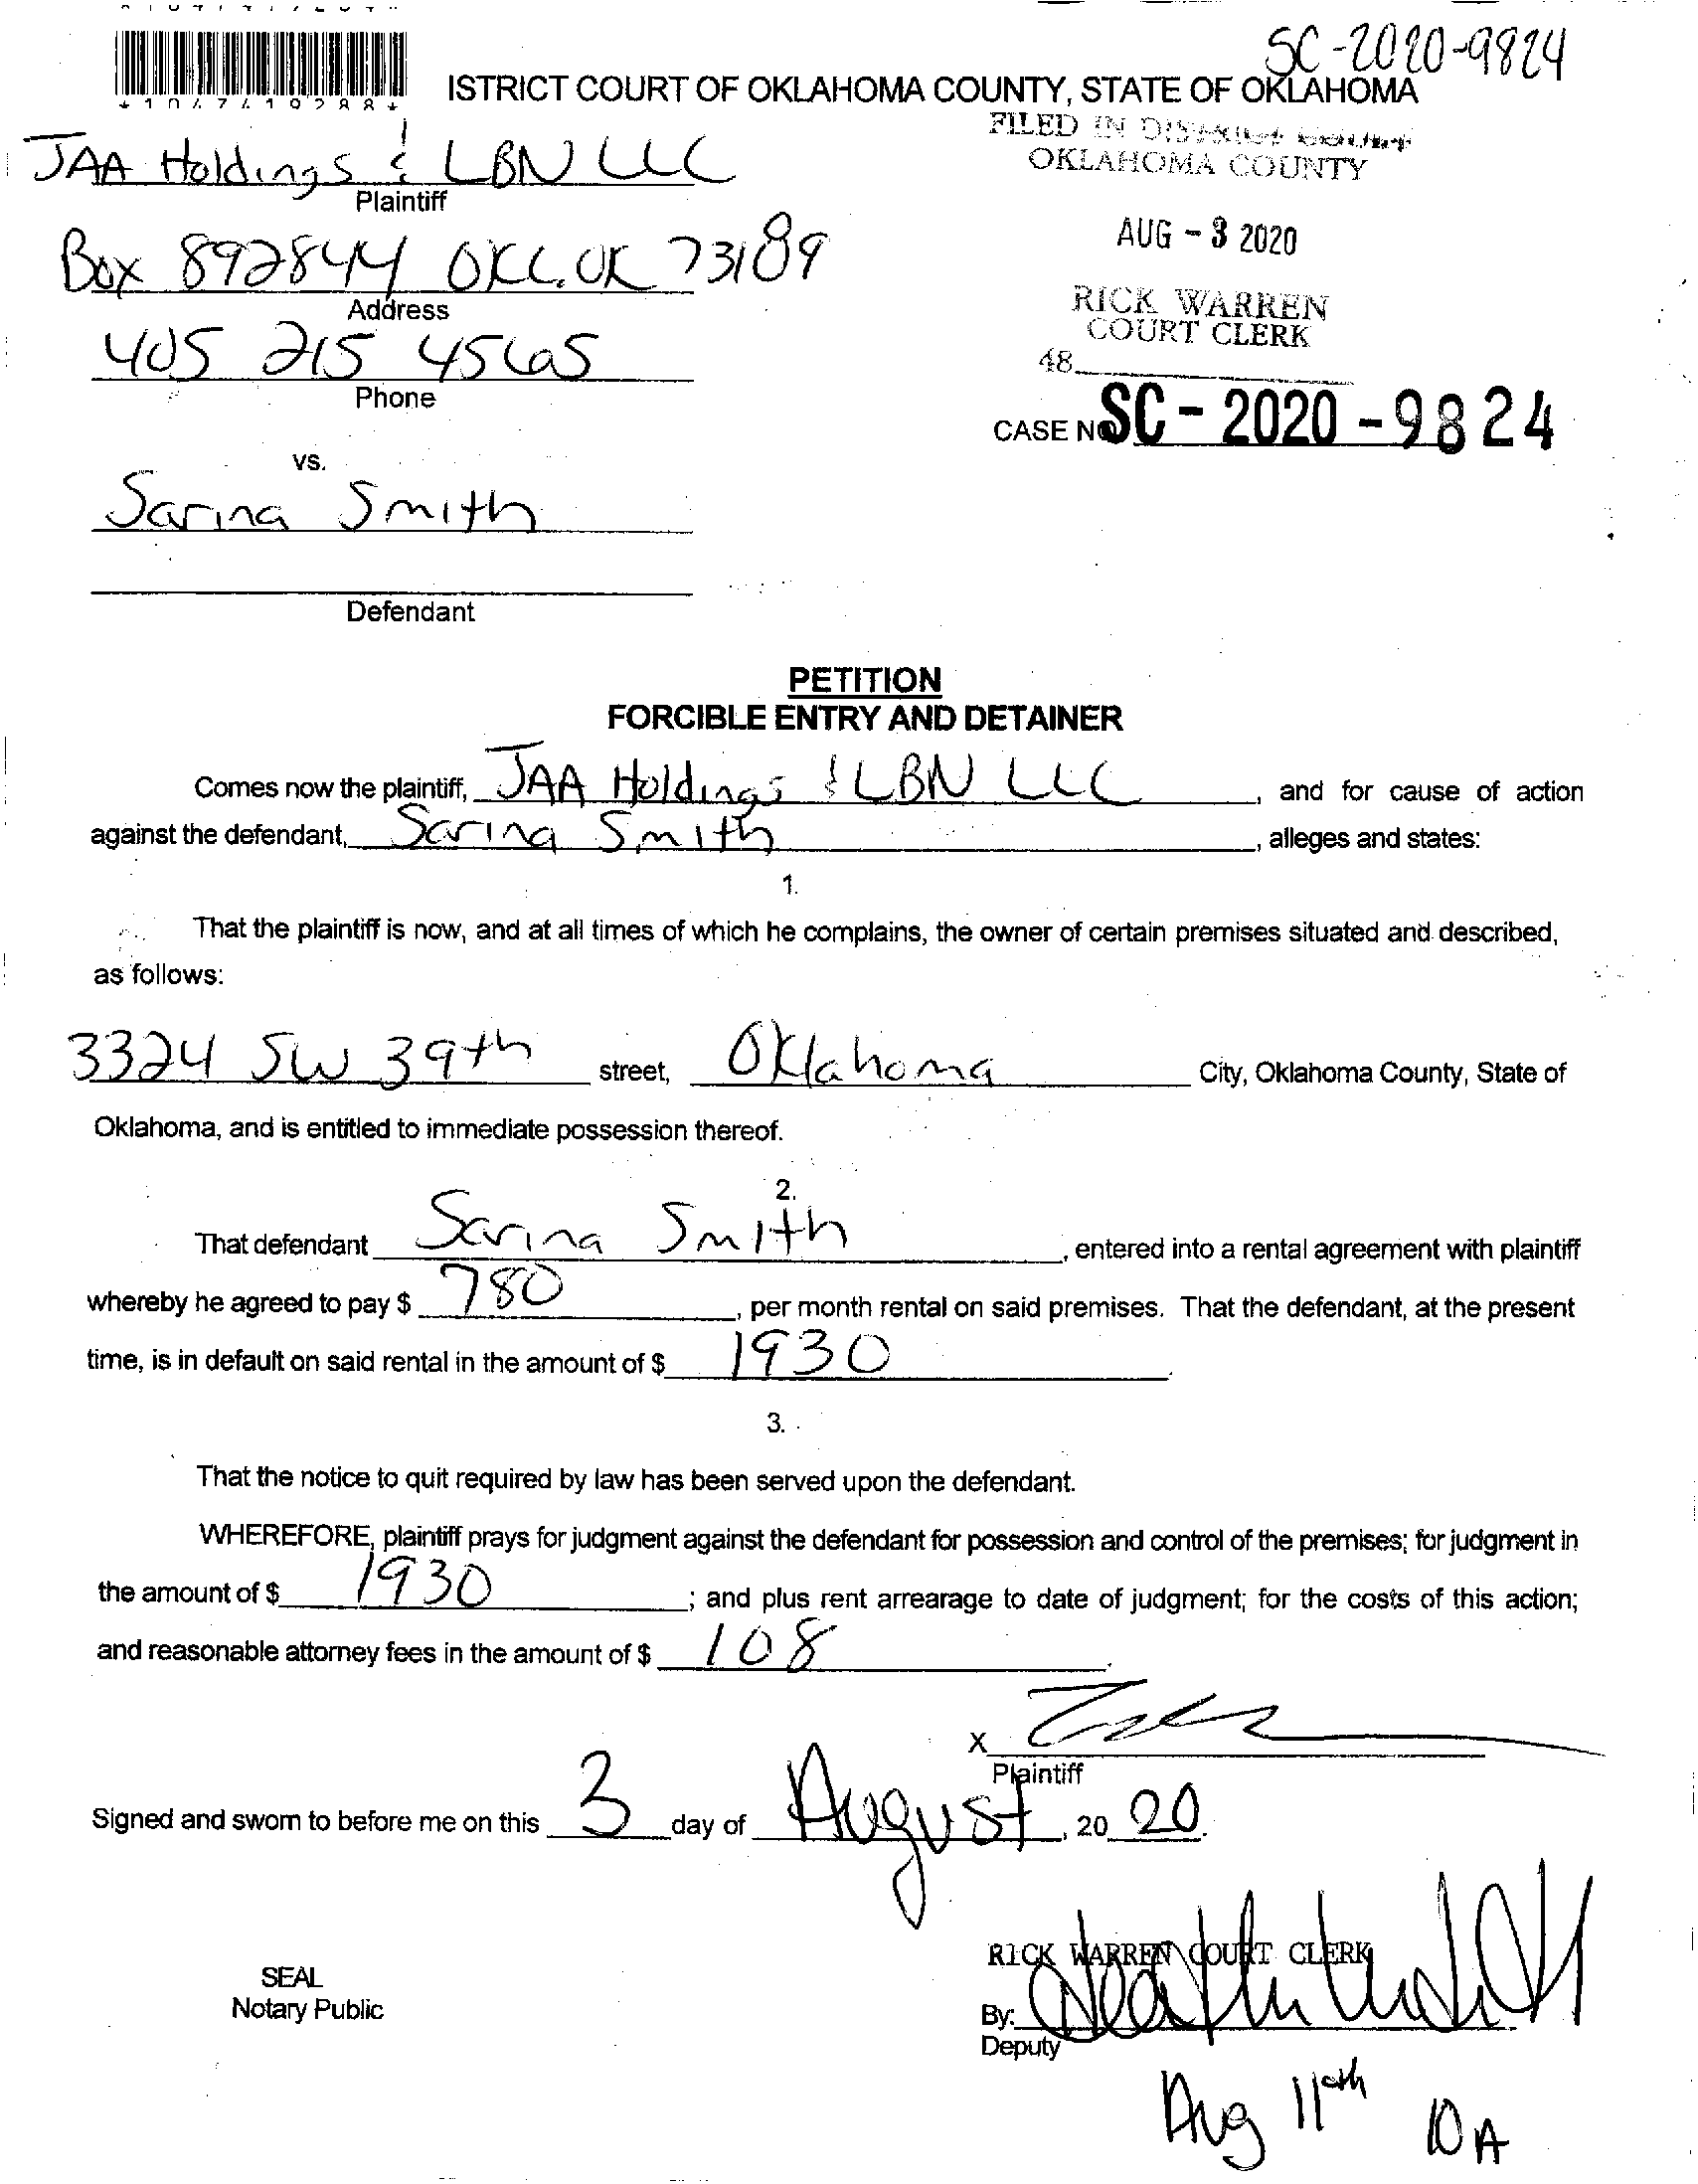 SC-2020-9824
ISTRICT COURT OF OKLAHOMA COUNTY, STATE OF OKLAHOMA
FILED IN DISTRICT COURT
OKLAHOMA COUNTY
JAA Holdings & LBN LLC
Plaintiff
AUG - 3 2020
Box 892844 OKC, OK 73189
Address
RICK WARREN
COURT CLERK
405 215 4565
Phone
48
CASE NO. SC - 2020 - 9824
vs.
Sarina Smith
Defendant
PETITION
FORCIBLE ENTRY AND DETAINER
Comes now the plaintiff, JAA Holdings & LBN LLC, and for cause of action
against the defendant, Sarina Smith, alleges and states:
1.
That the plaintiff is now, and at all times of which he complains, the owner of certain premises situated and described,
as follows:
3324 SW 39th street, Oklahoma City, Oklahoma County, State of
Oklahoma, and is entitled to immediate possession thereof.
2.
That defendant Sarina Smith, entered into a rental agreement with plaintiff
whereby he agreed to pay $ 780, per month rental on said premises. That the defendant, at the present
time, is in default on said rental in the amount of $ 1930.
3.
That the notice to quit required by law has been served upon the defendant.
WHEREFORE, plaintiff prays for judgment against the defendant for possession and control of the premises; for judgment in
the amount of $ 1930; and plus rent arrearage to date of judgment; for the costs of this action;
and reasonable attorney fees in the amount of $ 108.
X
Plaintiff
Signed and sworn to before me on this 3 day of August, 20 20.
RICK WARREN COURT CLERK
SEAL
Notary Public
By:
Deputy
Aug 11th 10 A